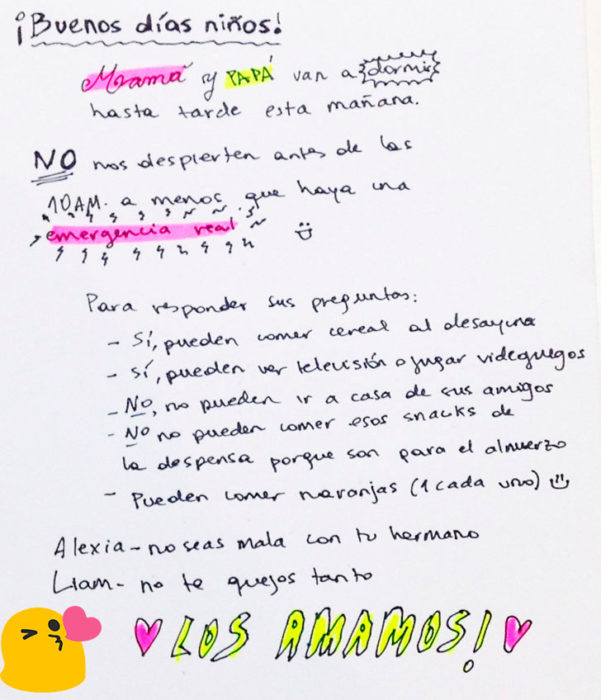 ¡Buenos días niños!
Mamá y PAPÁ van a dormir
hasta tarde esta mañana.
NO nos despierten antes de las
10AM. a menos que haya una
emergencia real
Para responder sus preguntas:
- Sí, pueden comer cereal al desayuno
- Sí, pueden ver televisión o jugar videojuegos
- No, no pueden ir a casa de sus amigos
- No no pueden comer esos snacks de
la despensa porque son para el almuerzo
- Pueden comer naranjas (1 cada uno)
Alexia - no seas mala con tu hermano
Liam - no te quejes tanto
LOS AMAMOS!